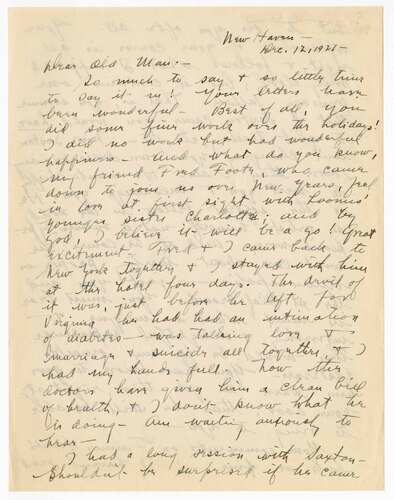 New Haven -
Dec. 12, 1921 -
Dear Old Man: -
So much to say & so little time
to say it in! Your letters have
been wonderful - Best of all, you
did some fine work over the holidays!
I did no work but had wonderful
happiness - And what do you know,
my friend Fred Foote, who came
down to join us over New Years, fell
in love at first sight with Loomis'
younger sister Charlotte; and by
God, I believe it will be a go! Great
excitement Fred & I came back to
New York together & I stayed with him
at the hotel four days. The devil of
it was, just before he left for
Virginia he had had an intimation
of diabetes - was talking love &
marriage & suicide all together, & I
had my hands full. Now the
doctors have given him a clean bill
of health, & I don't know what he
is doing - Am waiting anxiously to
hear -
I had a long session with Saxton -
Shouldn't be surprised if he came